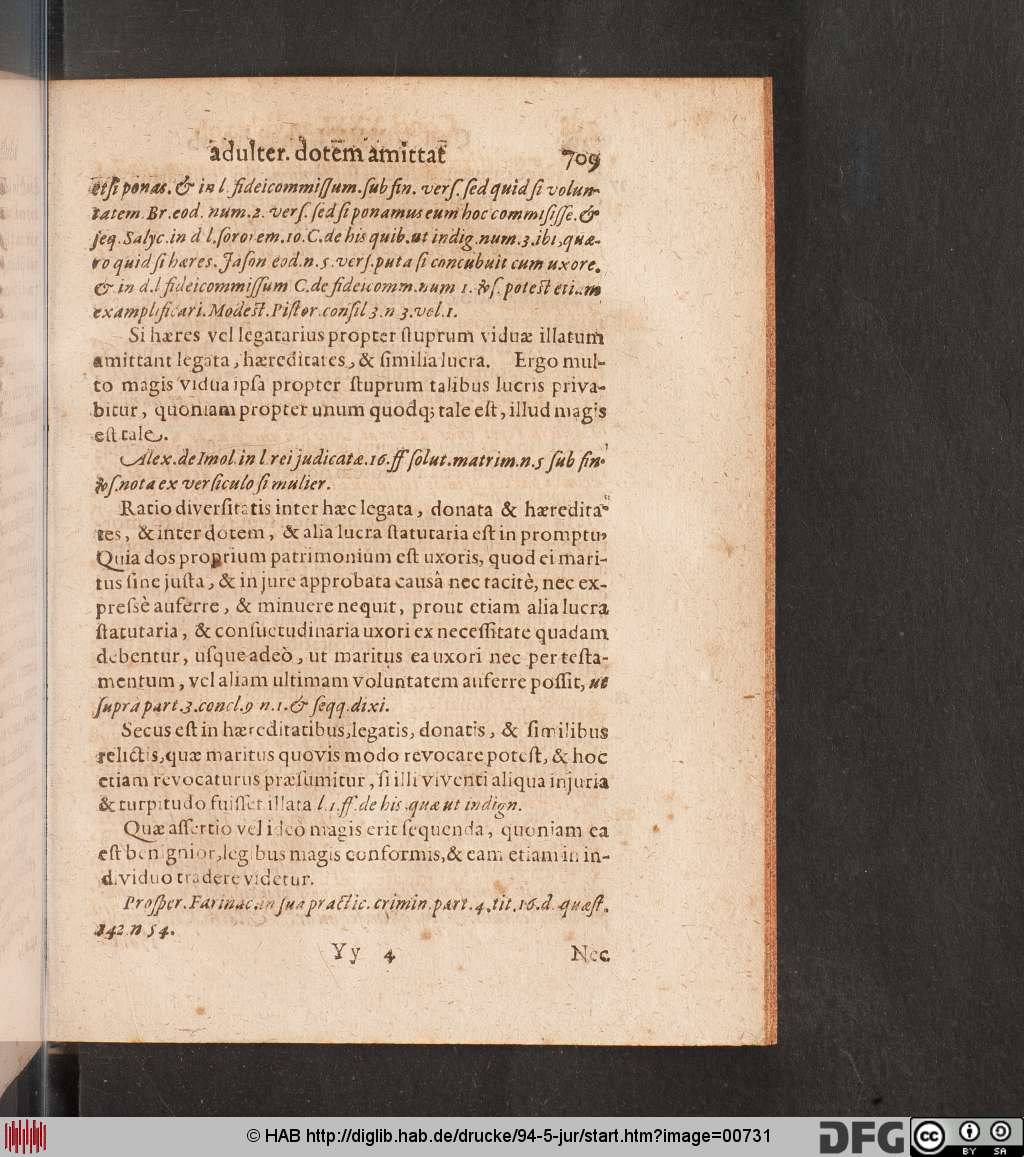 adulter. dotem amittat 709
etsi ponas. & in l. fideicommissum. sub fin. vers. sed quid si volun-
tatem. Br. eod. num. 2. vers. sed si ponamus eum hoc commisisse. &
seq. Salyc. in d l. sororem. 10. C. de his quib. ut indig. num. 3. ibi, quæ-
ro quid si hæres. Jason eod. n. 5. vers. puta si concubuit cum uxore.
& in d. l fideicommissum C. de fideicomm. num 1. potest etiam
examplificari. Modest. Pistor. consil 3. n 3. vol. 1.
Si hæres vel legatarius propter ſtuprum viduæ illatum
amittant legata, hæreditates, & ſimilia lucra. Ergo mul-
to magis vidua ipſa propter ſtuprum talibus lucris priva-
bitur, quoniam propter unum quodq; tale eſt, illud magis
eſt tale.
Alex. de Imol. in l. rei judicatæ. 16. ff ſolut. matrim. n. 5 ſub fin.
nota ex verſiculo ſi mulier.
Ratio diverſitatis inter hæc legata, donata & hæredita-
tes, & inter dotem, & alia lucra ſtatutaria eſt in promptu,
Quia dos proprium patrimonium eſt uxoris, quod ei mari-
tus ſine juſta, & in jure approbata causâ nec tacitè, nec ex-
preſsè auferre, & minuere nequit, prout etiam alia lucra
ſtatutaria, & conſuetudinaria uxori ex neceſſitate quadam
debentur, uſque adeò, ut maritus ea uxori nec per teſta-
mentum, vel aliam ultimam voluntatem auferre poſſit, ut
ſupra part. 3. concl. 9 n. 1. & ſeqq. dixi.
Secus eſt in hæreditatibus, legatis, donatis, & ſimilibus
relictis, quæ maritus quovis modo revocare poteſt, & hoc
etiam revocaturus præſumitur, ſi illi viventi aliqua injuria
& turpitudo fuiſſet illata l. 1. ff. de his, quæ ut indign.
Quæ aſſertio vel ideò magis erit ſequenda, quoniam ea
eſt benignior, legibus magis conformis, & eam etiam in in-
dividuo tradere videtur.
Proſper. Farinac. in ſua practic. crimin. part. 4. tit. 16. d. quæſt.
142 n 54.
Yy 4 Nec
© HAB http://diglib.hab.de/drucke/94-5-jur/start.htm?image=00731
DFG cc BY SA